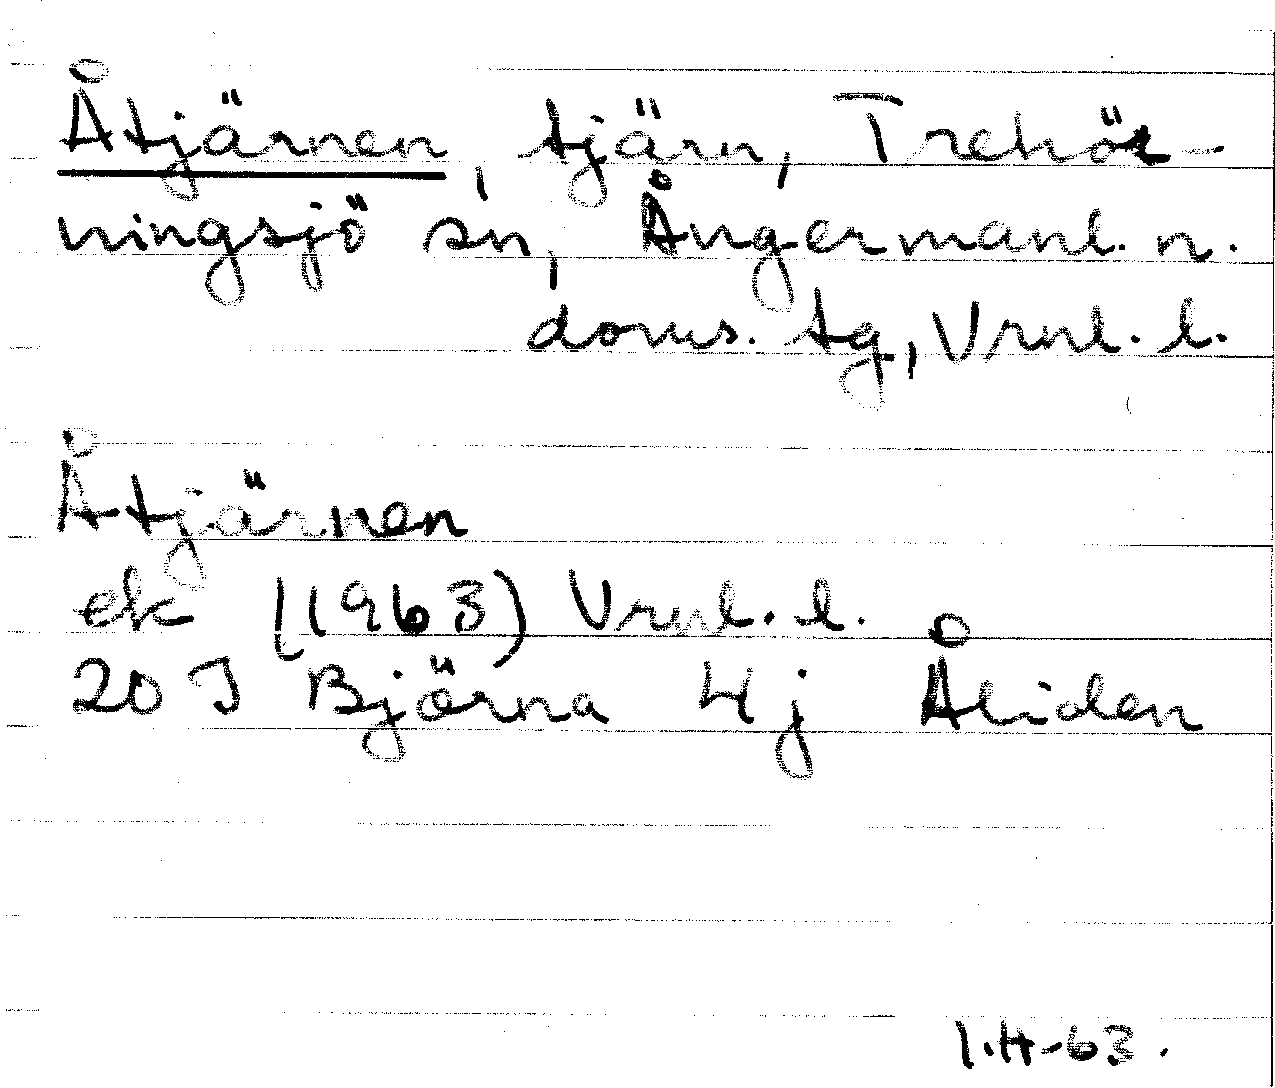 Åtjärnen, tjärn, Trehör-
ningsjö sn, Ångermanl. n.
doms. tg, Vrnl. l.
Åtjärnen
ek (1963) Vrnl. l.
20 J Björna 4 j Åliden
I.H-63.